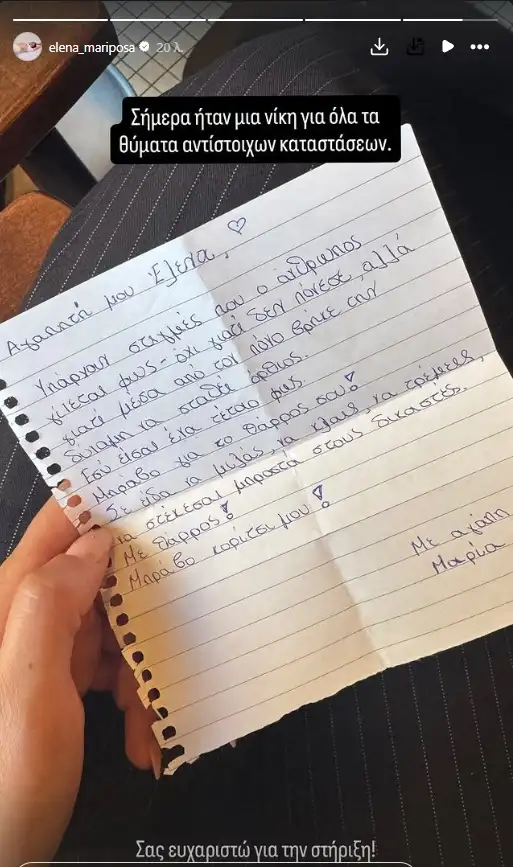 elena_mariposa 20 λ.
Σήμερα ήταν μια νίκη για όλα τα
θύματα αντίστοιχων καταστάσεων.
Αγαπητή μου Έλενα,
Υπάρχουν στιγμές που ο άνθρωπος
γίνεται φως - όχι γιατί δεν πόνεσε, αλλά
γιατί μέσα από τον πόνο βρήκε την
δύναμη να σταθεί όρθιος.
Εσύ είσαι ένα τέτοιο φως.
Μπράβο για το θάρρος σου!
Σε είδα να μιλάς, να κλαις, να τρέμεις,
να στέκεσαι μπροστά στους δικαστές.
Με θάρρος!
Μπράβο κορίτσι μου!
Με αγάπη
Μαρίνα
Σας ευχαριστώ για την στήριξη!